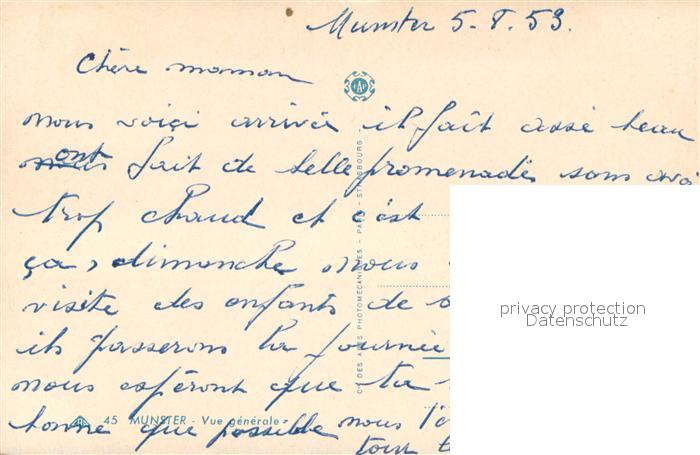 Munster 5-8-53.
Chère maman
nous voiçi arrivée il fait assé beau
ont fait de belle promenades sans
trop chaud et c'est
ça, dimanche nous
visite des enfants de
ils passerons la journée
nous espéront que ta
bonne que possible nous
tout
45 MUNSTER - Vue générale
Cie DES ARTS PHOTOMÉCANIQUES - PARIS - STRASBOURG
CAP
privacy protection
Datenschutz